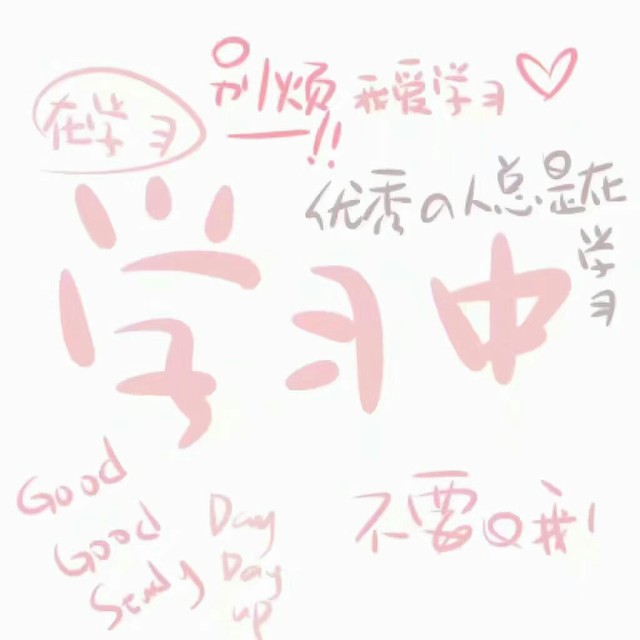 在学习
别烦
!!
我爱学习
优秀の人总是在
学
习
学习中
Good
Good
Study
Day
Day
up
不要Q我!